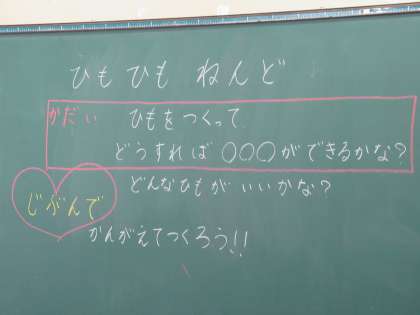 ひもひも ねんど
かだい ひもをつくって
どうすれば〇〇〇ができるかな?
どんなひもが いいかな?
じぶんで
かんがえてつくろう!!